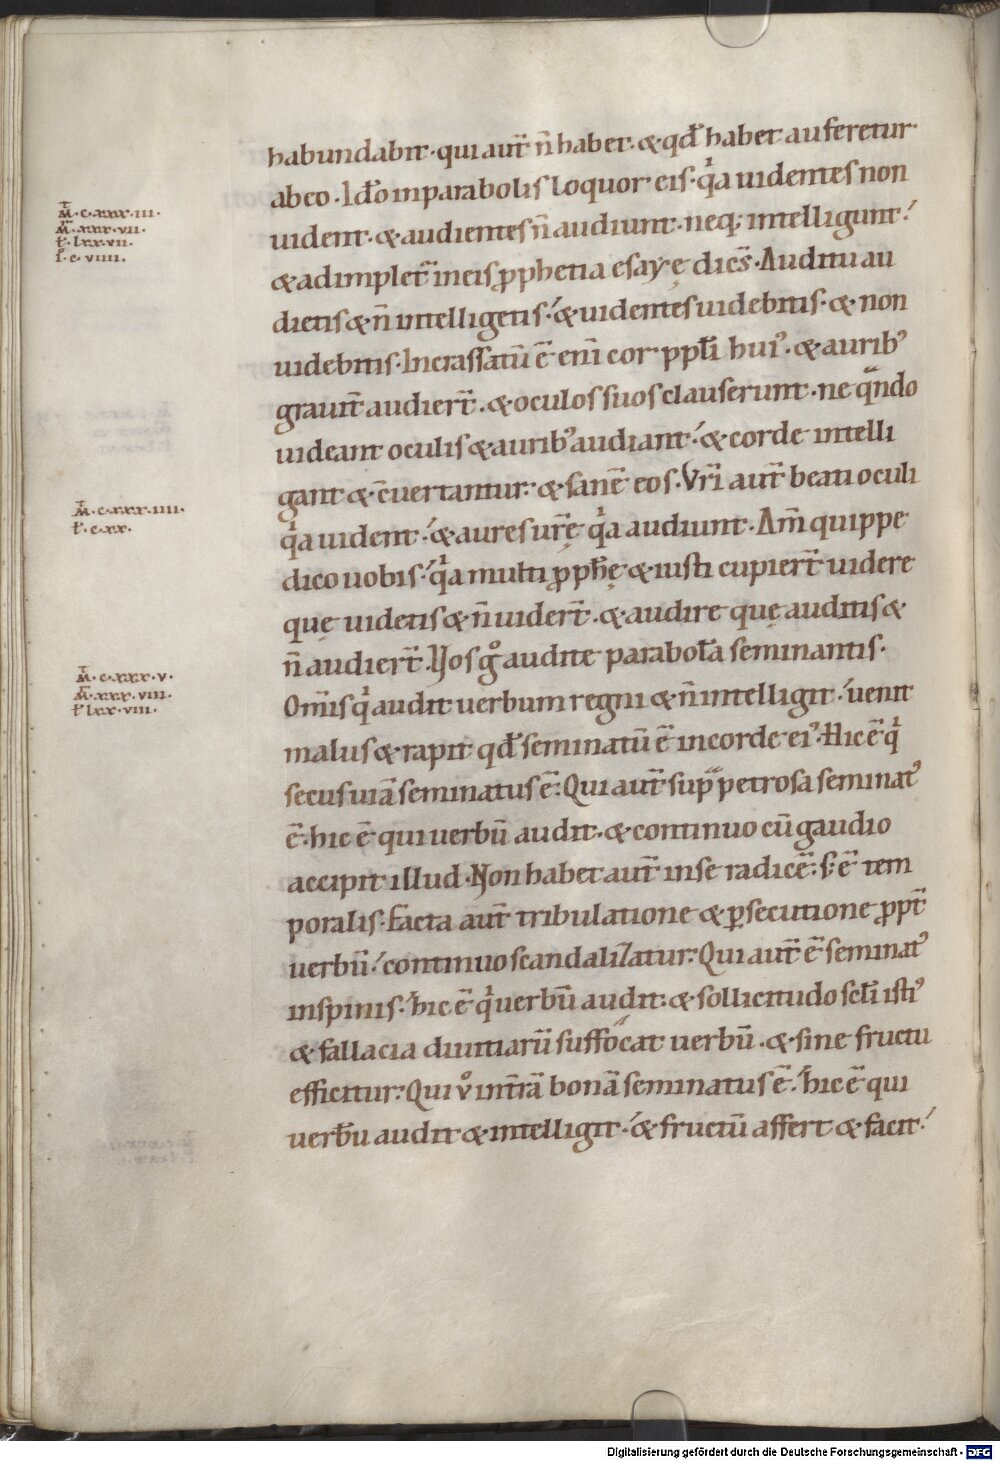 habundabit · qui aut̄ n̄ habet · & qđ habet auferetur
ab eo · Iđo in parabolis loquor eis · qͥa uidentes non
M̄ · c · xxx · iii ·
M̄ · xxx · vii ·
ł · lxx · vii ·
I · c · viiii ·
uident · & audientes n̄ audiunt · neq; intelligunt ·
& adimplet̄ in eis ꝓphetia esayę dicēs · Auditu au
dietis & n̄ intelligetis · & uidentes uidebitis · & non
uidebitis · Incrassatū ē eni cor ppłi huiꝰ · & auribꝰ
grauit̄ audiert̄ · & oculos suos clauserunt · ne qͣndo
uideant oculis & auribꝰ audiant · & corde intelli
gant & c̄uertantur · & sanē eos · Vr̄i aut̄ beati oculi
M̄ · c · xxx · iiii ·
ł · c · xx ·
qͥa uident · & aures ur̄ę qͥa audiunt · Am̄ quippe
dico uobis · qͥa multi ꝓph̄ę & iusti cupiert̄ uidere
quę uidetis & n̄ uidert̄ · & audire quę auditis &
n̄ audiert̄ · Vos gͦ audite paraboła seminantis ·
M̄ · c · xxx · v ·
M̄ · xxx · viii ·
ł lxx · viii ·
Om̄is qͥ audit uerbum regni & n̄ intelligit · uenit
malus & rapit qđ seminatū ē in corde eiꝰ · Hic ē qͥ
secus uiā seminatus ē · Qui aut̄ supͣ petrosa seminatꝰ
ē · hic ē qui uerbū audit · & continuo cū gaudio
accipit illud · Non habet aut̄ in se radicē · s · ē tem
poralis · Facta aut̄ tribulatione & ꝑsecutione ꝓpt̄
uerbū · continuo scandalizatur · Qui aut̄ ē seminatꝰ
in spinis · hic ē qͥ uerbū audit · & sollicitudo scłi istiꝰ
& fallacia diuitiarū suffocat uerbū · & sine fructu
efficitur · Qui vͦ in t̄rā bonā seminatus ē · hic ē qui
uerbū audit & intelligit · & fructū affert & facit ·
Digitalisierung gefördert durch die Deutsche Forschungsgemeinschaft - DFG